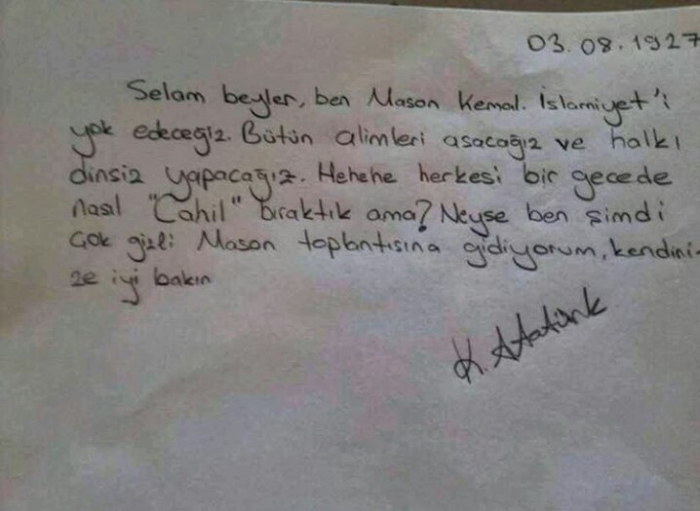 03.08.1927
Selam beyler, ben Mason Kemal. İslamiyet'i
yok edeceğiz. Bütün alimleri asacağız ve halkı
dinsiz yapacağız. Hehehe herkesi bir gecede
nasıl "Cahil" bıraktık ama? Neyse ben şimdi
çok gizli Mason toplantısına gidiyorum, kendini-
ze iyi bakın
K. Atatürk